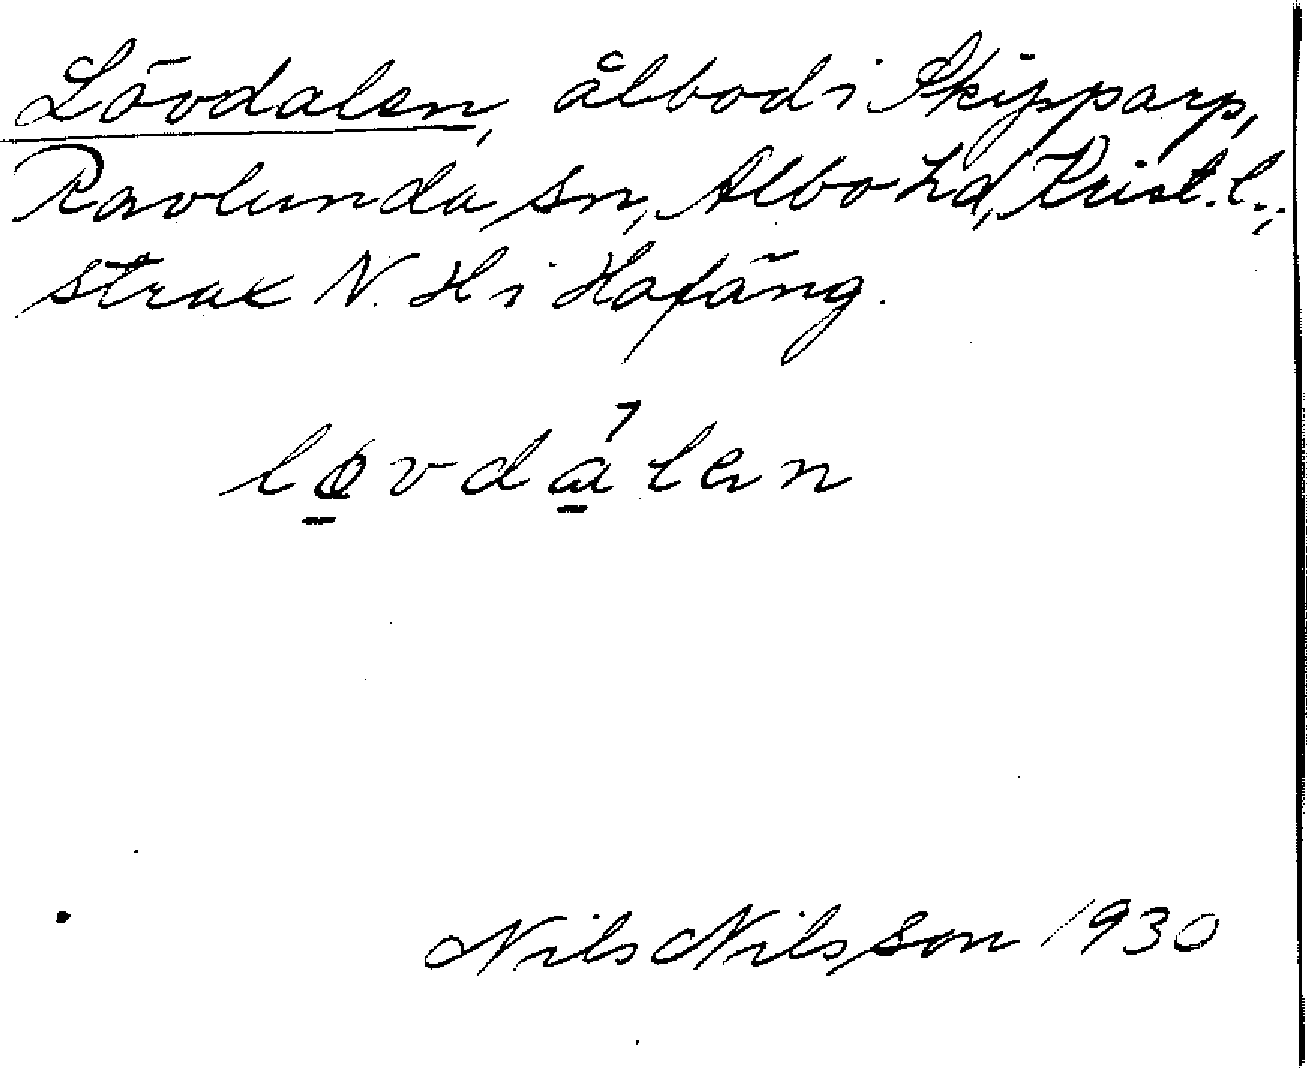 Lövdalen, ålbod i Skipparp,
Ravlunda sn, Albo hd, Krist. l.,
strax N. H i Hafäng.
løvdálen
Nils Nilsson 1930